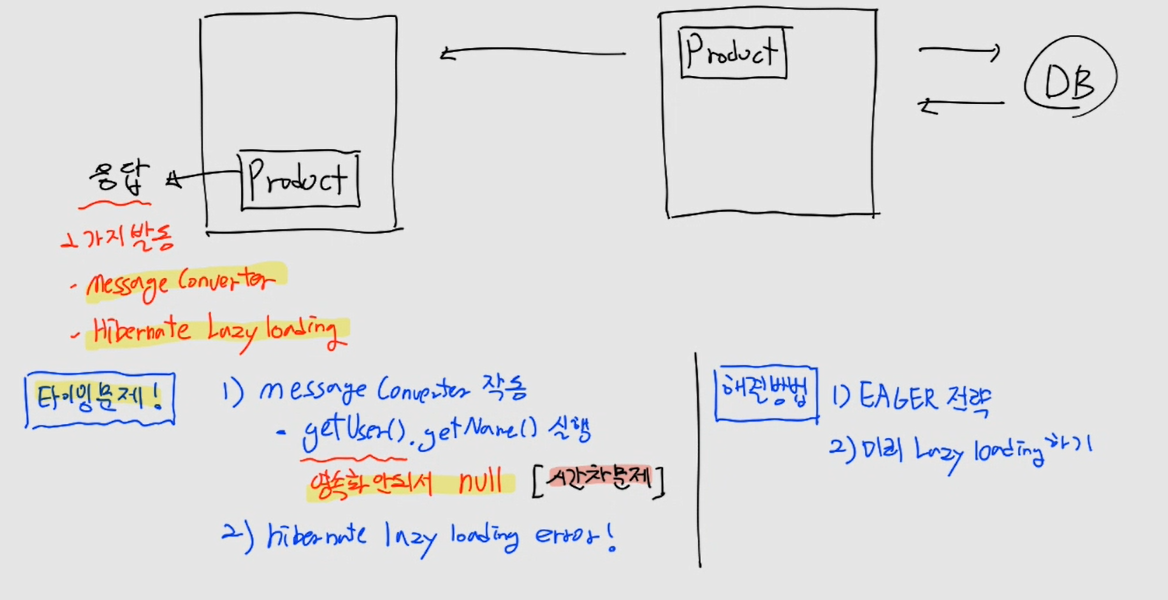 Product
DB
응답
Product
2가지 발동
- Message Converter
- Hibernate Lazy loading
타이밍문제!
1) message Converter 작동
- getUser().getName() 실행
영속화 안되서 null [시간차문제]
2) hibernate lazy loading error!
해결방법
1) EAGER 전략
2) 미리 Lazy loading 하기